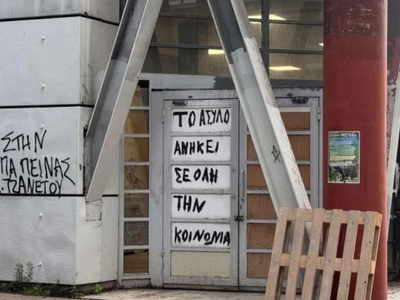 ΣΤΗΝ
ΓΙΑ ΠΕΙΝΑΣ
ΤΖΑΝΕΤΟΥ
ΤΟ ΑΣΥΛΟ
ΑΝΗΚΕΙ
ΣΕ ΟΛΗ
ΤΗΝ
ΚΟΙΝΩΝΙΑ